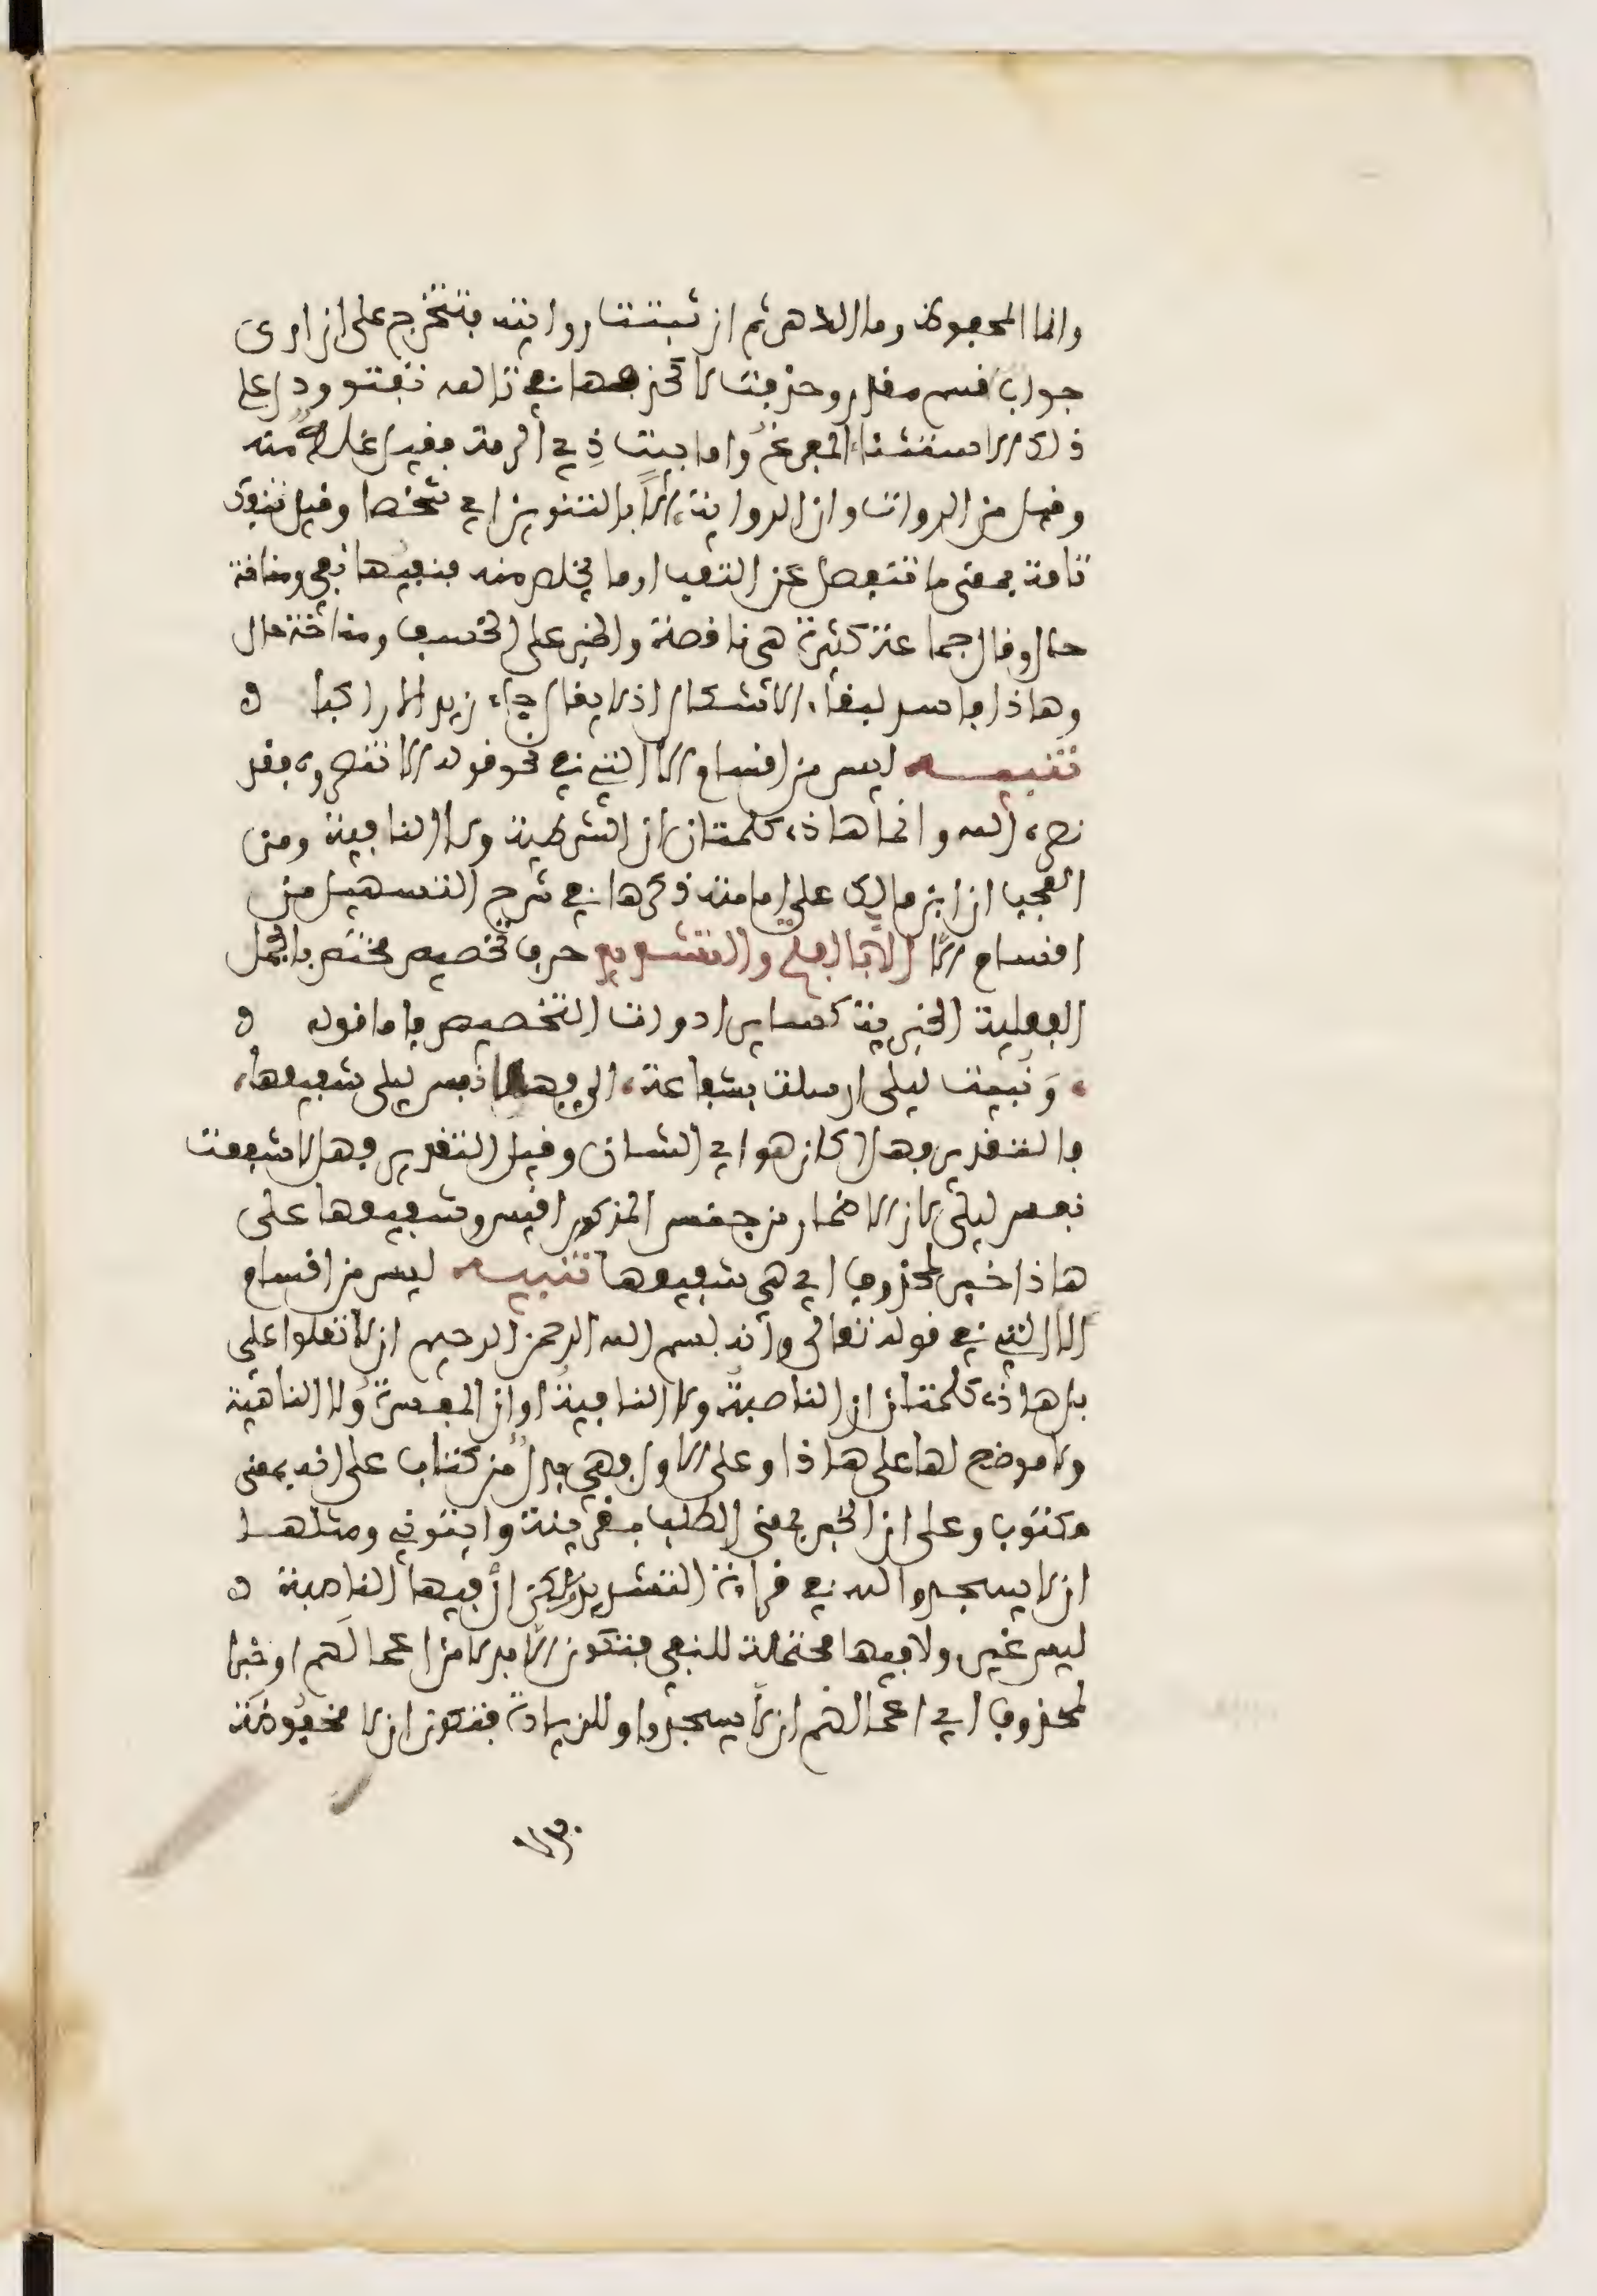 وانما المحفوظ وما الدهر ثم ان ثبتت روايته فتتخرج على ان ارى
جواب قسم مقدر وحذفت لا كحذفها في تالله تفتؤ ودل على
ذلك الاستثناء المفرغ واما بيت ذي الرمة فقيل غلط منه
وقيل من الرواة وان الرواية الاً بالتنوين اي شخصا وقيل تنفك
تامة بمعنى ما تنفصل عن التعب او ما تخلص منه فنفيها نفي ومناخة
حال وقال جماعة كثيرة هي ناقصة والخبر على الخسف ومناخة حال
وهاذا فاسد لبقاء الاشكال اذ لا يقال جاء زيد الا راكبا
تنبيه ليس من اقسام الا التي في نحو قوله الا تنصروه فقد
نصره الله وانما هاذه كلمتان ان الشرطية ولا النافية ومن
العجب ان ابن مالك على امامته ذكرها في شرح التسهيل من
اقسام الا الا بالفتح والتشديد حرف تحضيض مختص بالجمل
الفعلية الخبرية كساير ادوات التحضيض فاما قوله
ونبيت ليلى ارسلت بشفاعة الي فهلا نفس ليلى شفيعها
فالتقدير فهلا كان هو اي الشان وقيل التقدير فهلا شفعت
نفس ليلى لان الاضمار من جنس المذكور اقيس وشفيعها على
هاذا خبر لمحذوف اي هي شفيعها تنبيه ليس من اقسام
الا التي في قوله تعالى وانه بسم الله الرحمن الرحيم ان لا تعلوا علي
بل هاذه كلمتان ان الناصبة ولا النافية او ان المفسرة ولا الناهية
ولا موضع لها على هاذا وعلى الاول فهي بدل من كتاب على انه بمعنى
مكتوب وعلى ان الخبر بمعنى الطلب بقرينة وايتوني ومثلها
ان لا يسجدوا لله في قراءة التشديد لكن ان فيها الناصبة
ليس غير ولا فيها محتملة للنفي فتكون الا بدلا من اعمالهم او خبرا
لمحذوف اي اعمالهم ان لا يسجدوا وللزيادة فتكون ان لا مخفوضة